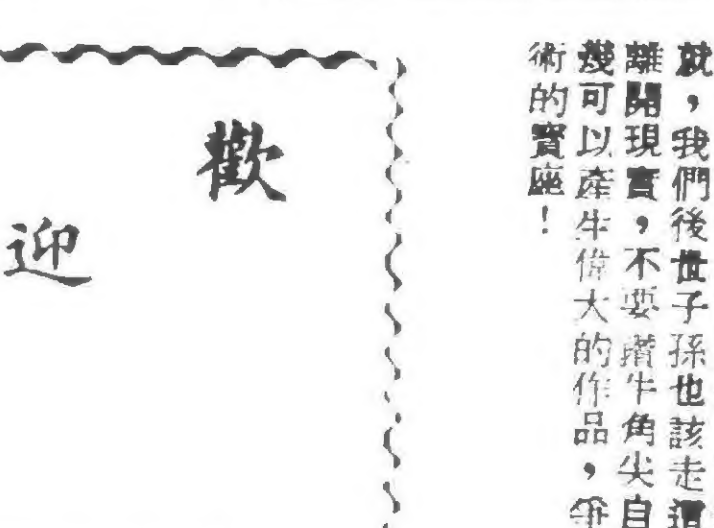 就，我們後世子孫也該走這
離開現實，不要鑽牛角尖自
幾可以產生偉大的作品，爭
術的寶座！
歡
迎